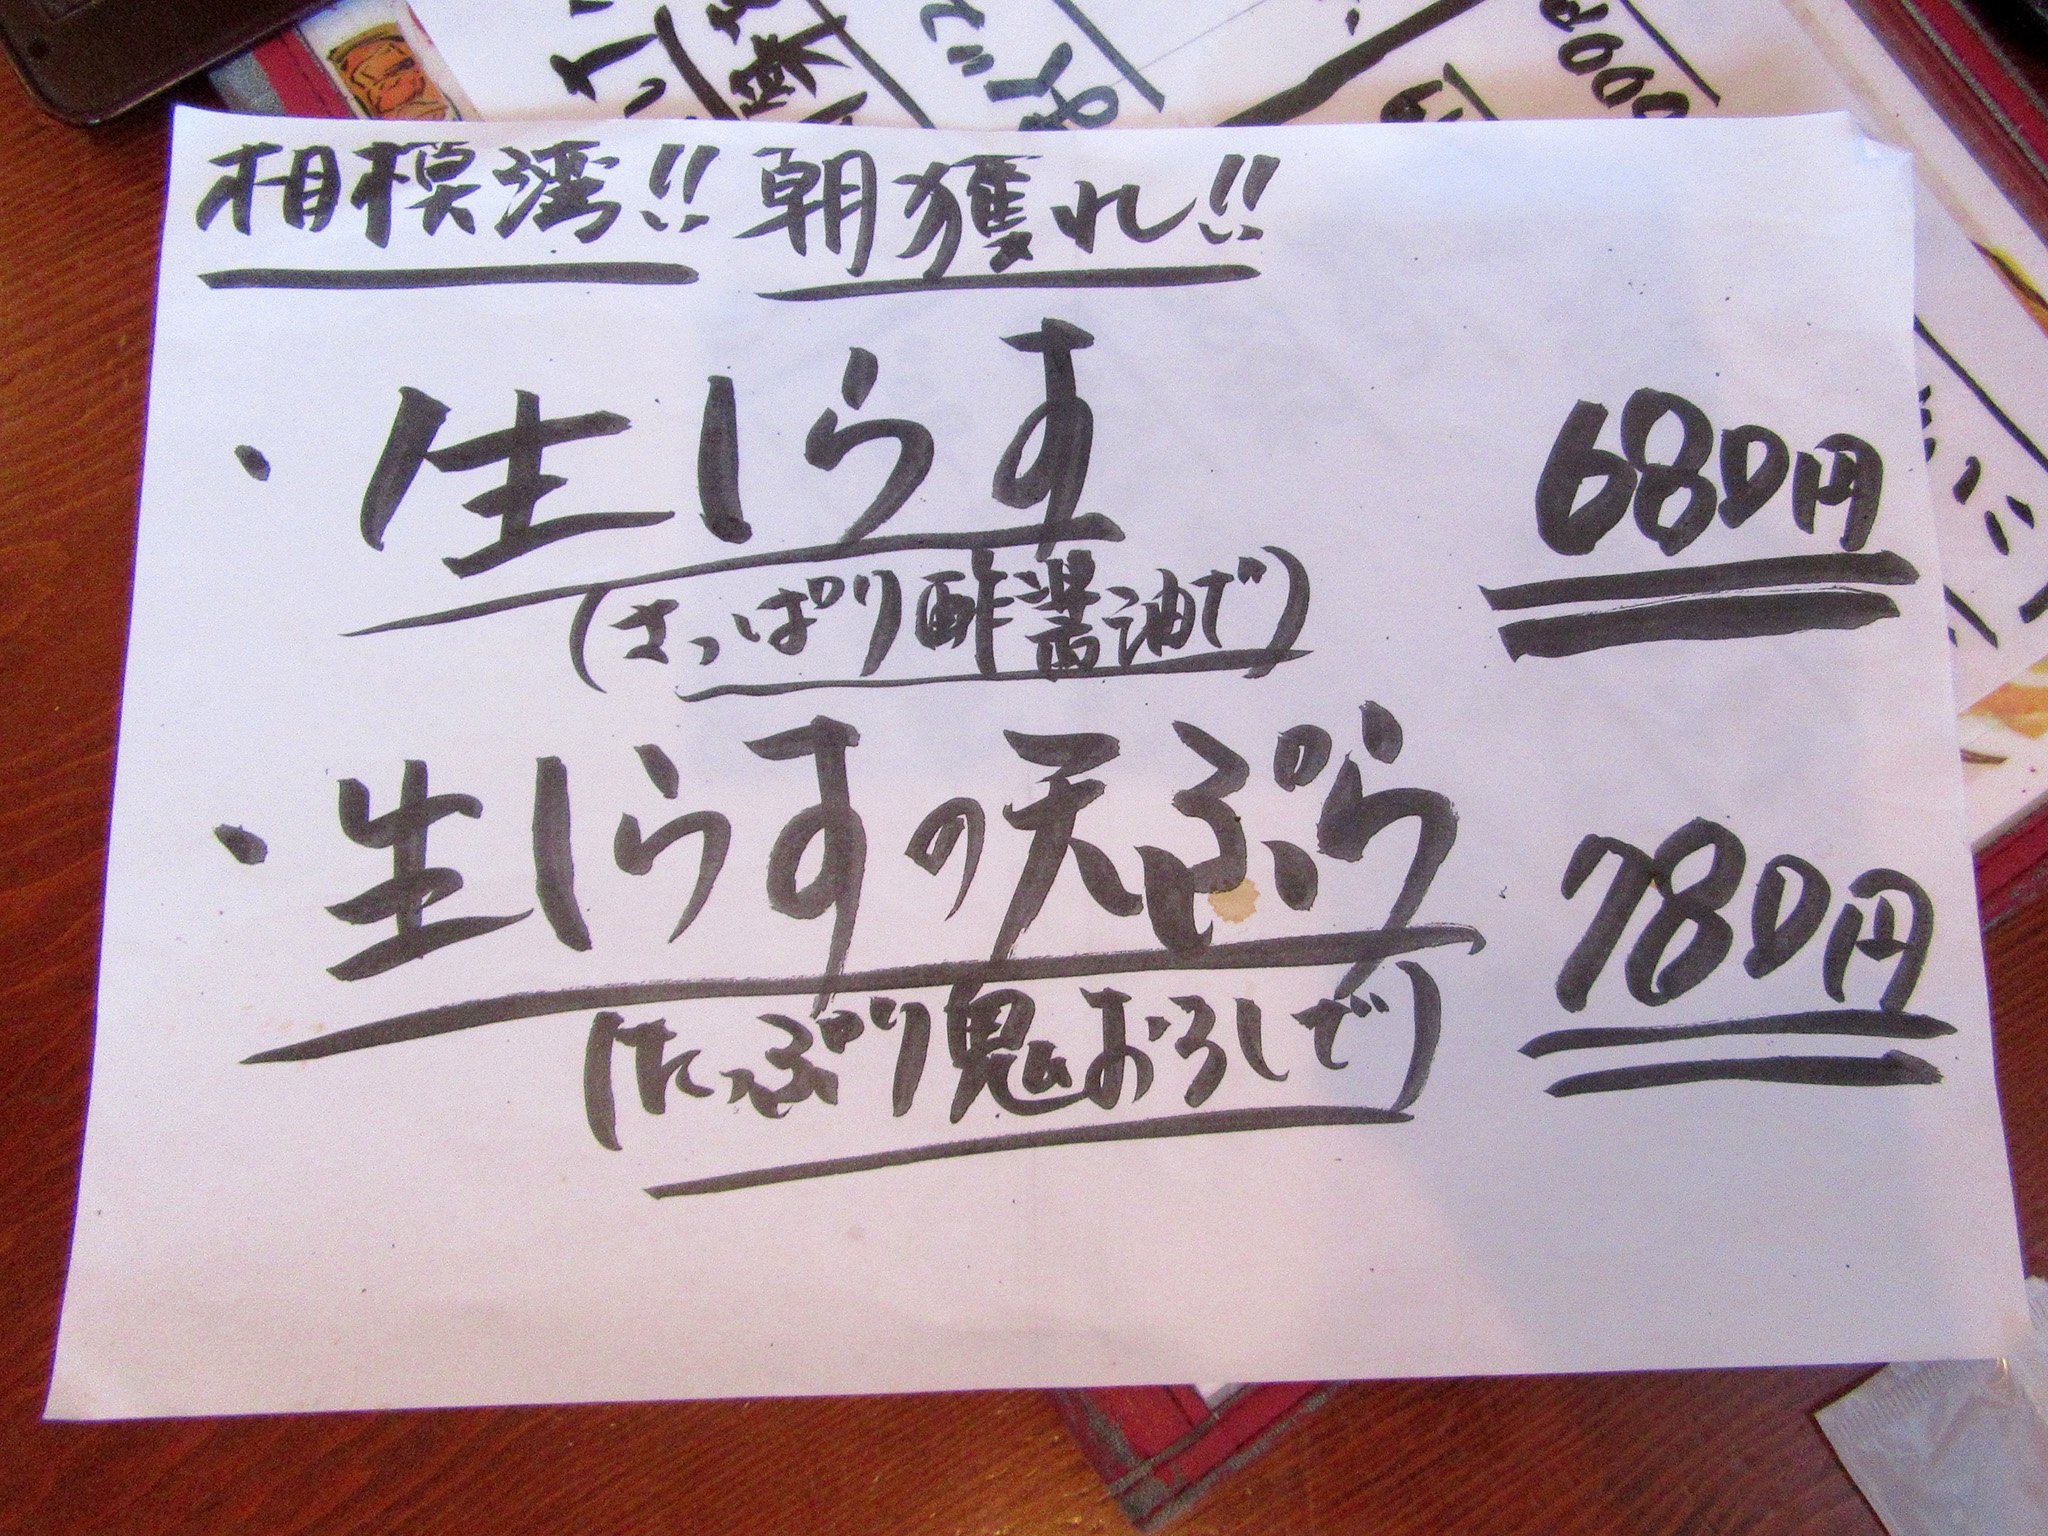 相模湾!! 朝獲れ!!
・生しらす 680円
(さっぱり酢醤油で)
・生しらすの天ぷら 780円
(たっぷり鬼おろしで)